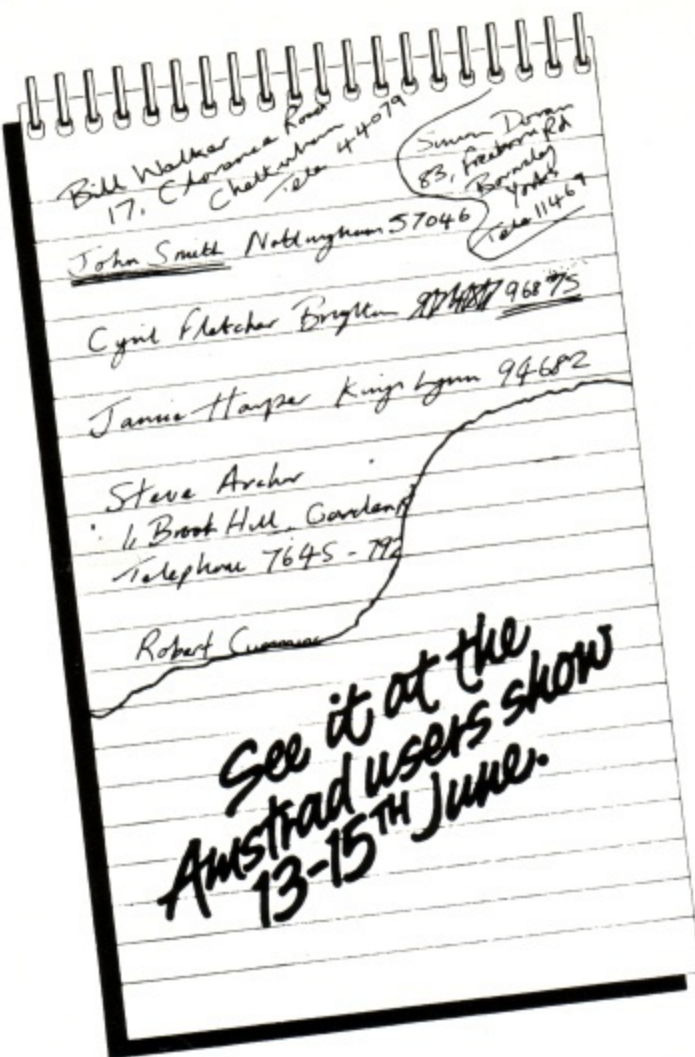 Bill Walker
17, Clarence Road
Cheltenham
Tele 44079
Simon Doran
83, Rd
Barnsley
Yorks
Tele 11469
John Smith Nottingham 57046
Cyril Fletcher Brighton 96875
Harper Kings Lynn 94682
Steve Archer
1, Brook Hill
Telephone 7645 - 792
Robert
See it at the
Amstrad users show
13-15TH June.